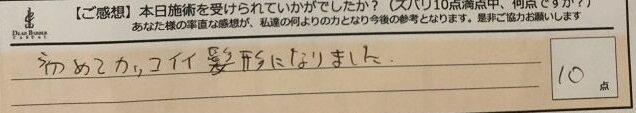 【ご感想】本日施術を受けられていかがでしたか？（ズバリ10点満点中、何点ですか？）
あなた様の率直な感想が、私達の何よりの力となり今後の参考となります。是非ご協力お願いします
DEAR BARBER
CASUAL
初めてカッコイイ髪形になりました.
10 点